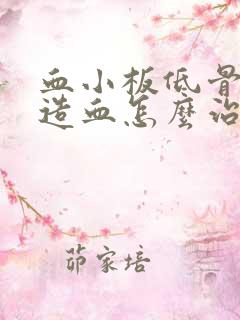 血小板低骨
造血怎麼治
茆家培